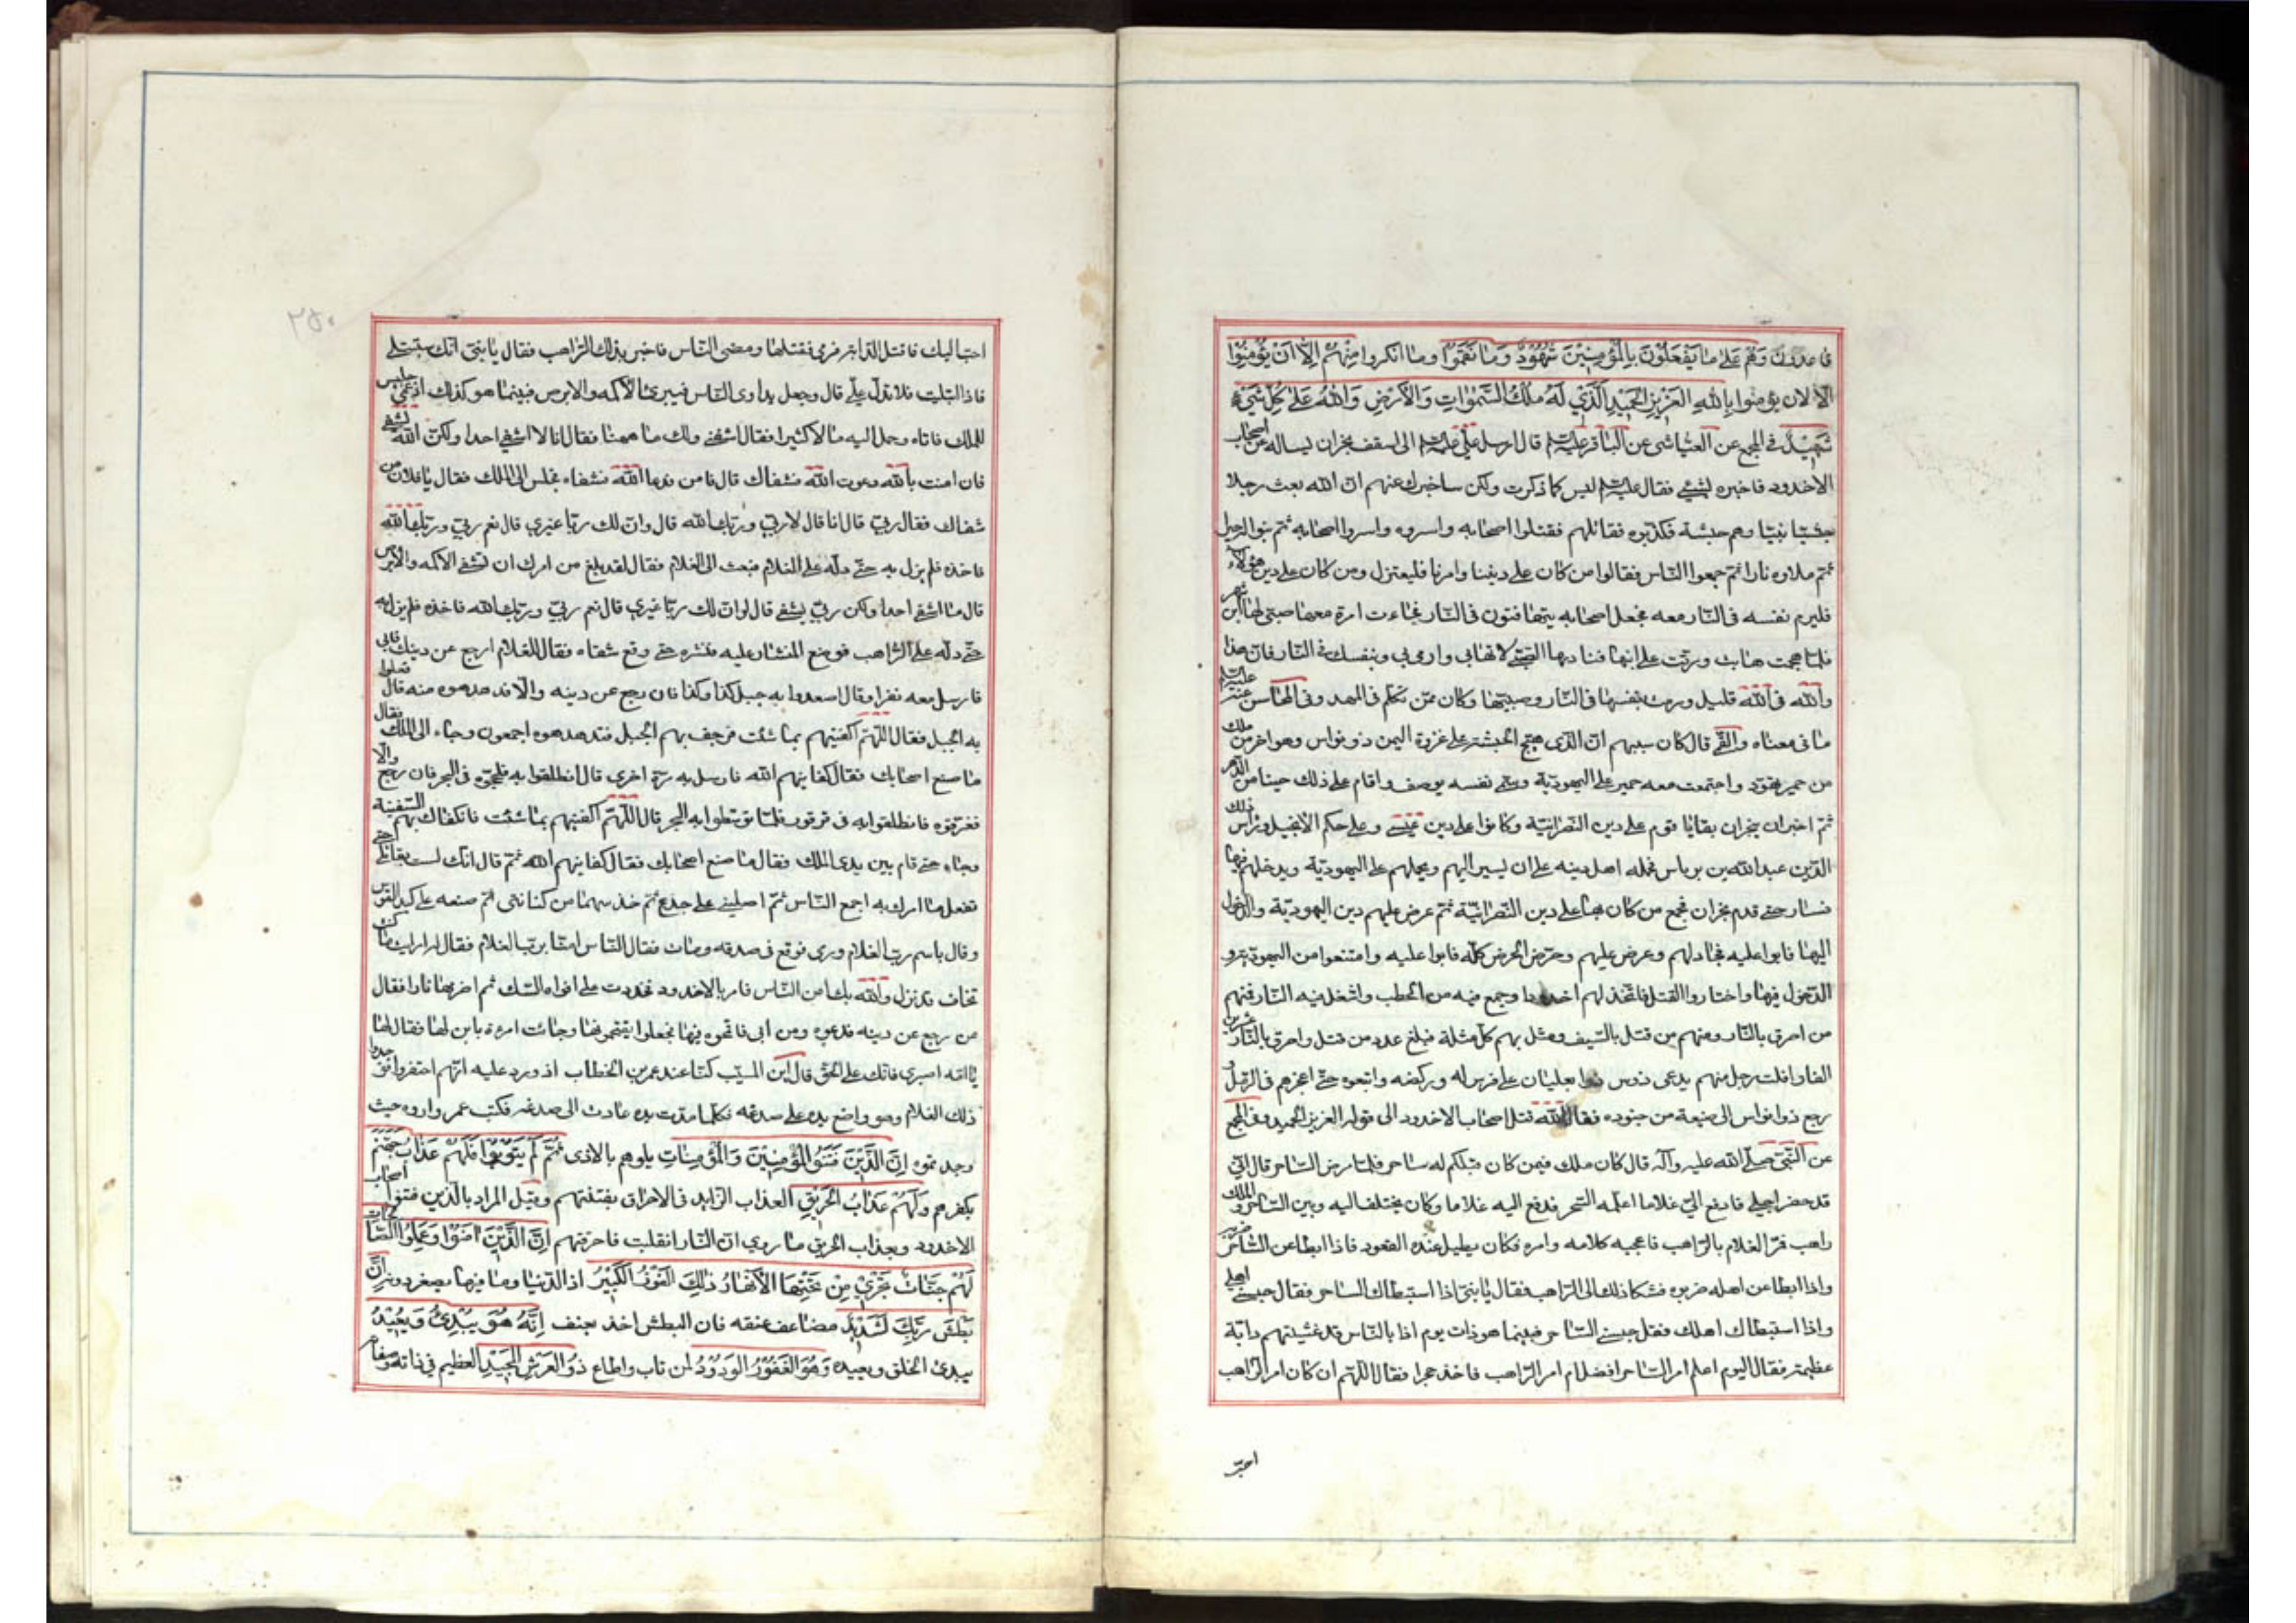 قاعدون وَهُمْ عَلىٰ مٰا يَفْعَلُونَ بِالْمُؤْمِنِينَ شُهُودٌ وَمٰا نَقَمُوا وما انكروا مِنْهُمْ اِلّٰا اَنْ يُؤْمِنُوا
الّا لان يؤمنوا بِاللّٰهِ الْعَزِيزِ الْحَمِيدِ الَّذِي لَهُ مُلْكُ السَّمٰوٰاتِ وَالْاَرْضِ وَاللّٰهُ عَلىٰ كُلِّ شَيْءٍ
شَهِيدٌ في المجمع عن العيّاشى عن الباقر عليه السلم قال ارسل عليّ عليه السلم الى اسقف نجران ليساله عن اصحاب
الاخدود فاخبره بشيء فقال عليه السلم ليس كما ذكرت ولكن ساخبرك عنهم انّ الله بعث رجلا
حبشيّا نبيّا وهم حبشة فكذّبوه فقاتلهم فقتلوا اصحابه واسروه واسروا اصحابه ثم بنوا له حيرا
ثم ملاوه نارا ثم جمعوا النّاس فقالوا من كان على ديننا وامرنا فليعتزل ومن كان على دين هؤلاء
فليرم نفسه فى النّار معه فجعل اصحابه يتهافتون فى النّار فجاءت امرة معها صبى لها ابن شهر
فلمّا هجمت هابت ورقّت على ابنها فنادىها الصّبي لا تهابي وارمى بي وبنفسك في النّار فان هذا
والله فى الله قليل ورمت بنفسها فى النّار وصبيّها وكان ممّن تكلّم فى المهد وفى المحاسن عنه عليه السلم
ما فى معناه والقمّي قال كان سببهم انّ الذى هيّج الحبشة على غزوة اليمن ذو نواس وهو اخر من ملك
من حمير تهوّد واجتمعت معه حمير على اليهوديّة وسمّى نفسه يوسف واقام على ذلك حينا من الدّهر
ثم اخبر ان بنجران بقايا قوم على دين النّصرانيّة وكانوا على دين عيسى وعلى حكم الانجيل وراس ذلك
الدّين عبد الله بن برياس فحمله اهل دينه على ان يسير اليهم ويحملهم على اليهوديّة ويدخلهم فيها
فسار حتى قدم نجران فجمع من كان بها على دين النّصرانيّة ثم عرض عليهم دين اليهوديّة والدّخول
اليها فابوا عليه فجادلهم وعرض عليهم وحرص الحرص كلّه فابوا عليه وامتنعوا من اليهوديّة و
الدّخول فيها واختاروا القتل فاتّخذ لهم اخدودا وجمع فيه من الحطب واشعل فيه النّار فمنهم
من احرق بالنّار ومنهم من قتل بالسّيف ومثل بهم كلّ مثلة فبلغ عدد من قتل واحرق بالنّار عشرين
الفا وافلت رجل منهم يدعى دوس ذوا ثعلبان على فرس له وركضه واتبعوه حتى اعجزهم فى الرّمل و
رجع ذو انواس الى ضيعة من جنوده فقال الله قتل اصحاب الاخدود الى قوله العزيز الحميد وفى المجمع
عن النّبيّ صلّى الله عليه وآله قال كان ملك فيمن كان قبلكم له ساحر فلمّا مرض السّاحر قال انّي
قد حضر اجلي فادفع اليّ غلاما اعلّمه السّحر فدفع اليه غلاما وكان يختلف اليه وبين السّاحر والملك
راهب فمرّ الغلام بالرّاهب فاعجبه كلامه وامره فكان يطيل عنده القعود فاذا ابطا عن السّاحر ضربه
واذا ابطا عن اهله ضربوه فشكا ذلك الى الرّاهب فقال يا بنيّ اذا استبطاك السّاحر فقال حبسني اهلي
واذا استبطاك اهلك فقل حبسني السّاحر فبينما هو ذات يوم اذا بالنّاس قد غشيتهم دابّة
عظيمة فقال اليوم اعلم امر السّاحر افضل ام امر الرّاهب فاخذ حجرا فقال اللّهم ان كان امر الرّاهب
احبّ
٢٥٠
احبّ اليك فاقتل الدّابّة فرمى فقتلها ومضى النّاس فاخبر بذلك الرّاهب فقال يا بنيّ انّك ستبتلى
فاذا ابتليت فلا تدلّ عليّ قال وجعل يداوى النّاس فيبرئ الاكمه والابرص فبينما هو كذلك اذ عمي جليس
للملك فاتاه وحمل اليه مالا كثيرا فقال اشفني ولك ما ههنا فقال انا لا اشفي احدا ولكنّ الله يشفي
فان امنت بالله دعوت الله فشفاك قال فامن فدعا الله فشفاه فجلس الى الملك فقال يا فلان من
شفاك فقال ربّي قال انا قال لا ربّي وربّك الله قال وانّ لك ربّا غيري قال نعم ربّي وربّك الله
فاخذه فلم يزل به حتّى دلّه على الغلام فبعث الى الغلام فقال لقد بلغ من امرك ان تشفي الاكمه والابرص
قال ما اشفي احدا ولكن ربّي يشفي قال اوانّ لك ربّا غيري قال نعم ربّي وربّك الله فاخذه فلم يزل به
حتّى دلّه على الرّاهب فوضع المنشار عليه فنشره حتى وقع شقاه فقال للغلام ارجع عن دينك فابى
فارسل معه نفرا وقال اصعدوا به جبل كذا وكذا فان رجع عن دينه والّا فدهدهوه منه قال فعلوا
به الجبل فقال اللّهمّ اكفنيهم بما شئت فرجف بهم الجبل فتدهدهوه اجمعون وجاء الى الملك فقال
ما صنع اصحابك فقال كفانيهم الله فارسل به مرّة اخرى قال انطلقوا به فلجّجوه فى البحر فان رجع والّا
فغرّقوه فانطلقوا به فى قرقور فلمّا توسّطوا به البحر قال اللّهمّ اكفنيهم بما شئت فانكفات بهم السّفينة
وجاء حتى قام بين يدى الملك فقال ما صنع اصحابك فقال كفانيهم الله ثمّ قال انّك لست بقاتلي حتّى
تفعل ما امرك به اجمع النّاس ثمّ اصلبني على جذع ثم خذ سهما من كنانتى ثم ضعه على كبد القوس
وقال باسم ربّ الغلام ورمى فوقع فى صدغه ومات فقال النّاس امنّا بربّ الغلام فقال له ارايت ما كنت
تخاف قد نزل والله بك امن النّاس فامر بالاخدود فخددت على افواه السّكك ثم اضرمها نارا فقال
من رجع عن دينه فدعوه ومن ابى فاقحموه فيها فجعلوا يقتحمونها وجائت امرءة بابن لها فقال لها
يا امّه اصبري فانّك على الحقّ قال ابن المسيّب كنّا عند عمر بن الخطاب اذ ورد عليه انّهم احتفروا فوجدوا
ذلك الغلام وهو واضع يده على صدغه فكلّما مدّت يده عادت الى صدغه فكتب عمر واروه حيث
وجدتموه اِنَّ الَّذِينَ فَتَنُوا الْمُؤْمِنِينَ وَالْمُؤْمِنٰاتِ بلوهم بالاذى ثُمَّ لَمْ يَتُوبُوا فَلَهُمْ عَذٰابُ جَهَنَّمَ
بكفرهم وَلَهُمْ عَذٰابُ الْحَرِيقِ العذاب الزّايد فى الاحراق بفتنتهم وقيل المراد بالّذين فتنوا اصحاب
الاخدود وبعذاب الحريق ما روي انّ النّار انقلبت فاحرقتهم اِنَّ الَّذِينَ اٰمَنُوا وَعَمِلُوا الصّٰالِحٰاتِ
لَهُمْ جَنّٰاتٌ تَجْرِي مِنْ تَحْتِهَا الْاَنْهٰارُ ذٰلِكَ الْفَوْزُ الْكَبِيرُ اذ الدّنيا وما فيها يصغر دونه اِنَّ
بَطْشَ رَبِّكَ لَشَدِيدٌ مضاعف عنفه فان البطش اخذ بعنف اِنَّهُ هُوَ يُبْدِئُ وَيُعِيدُ
يبدئ الخلق ويعيده وَهُوَ الْغَفُورُ الْوَدُودُ لمن تاب واطاع ذُو الْعَرْشِ الْمَجِيدُ العظيم في ذاته وصفاته